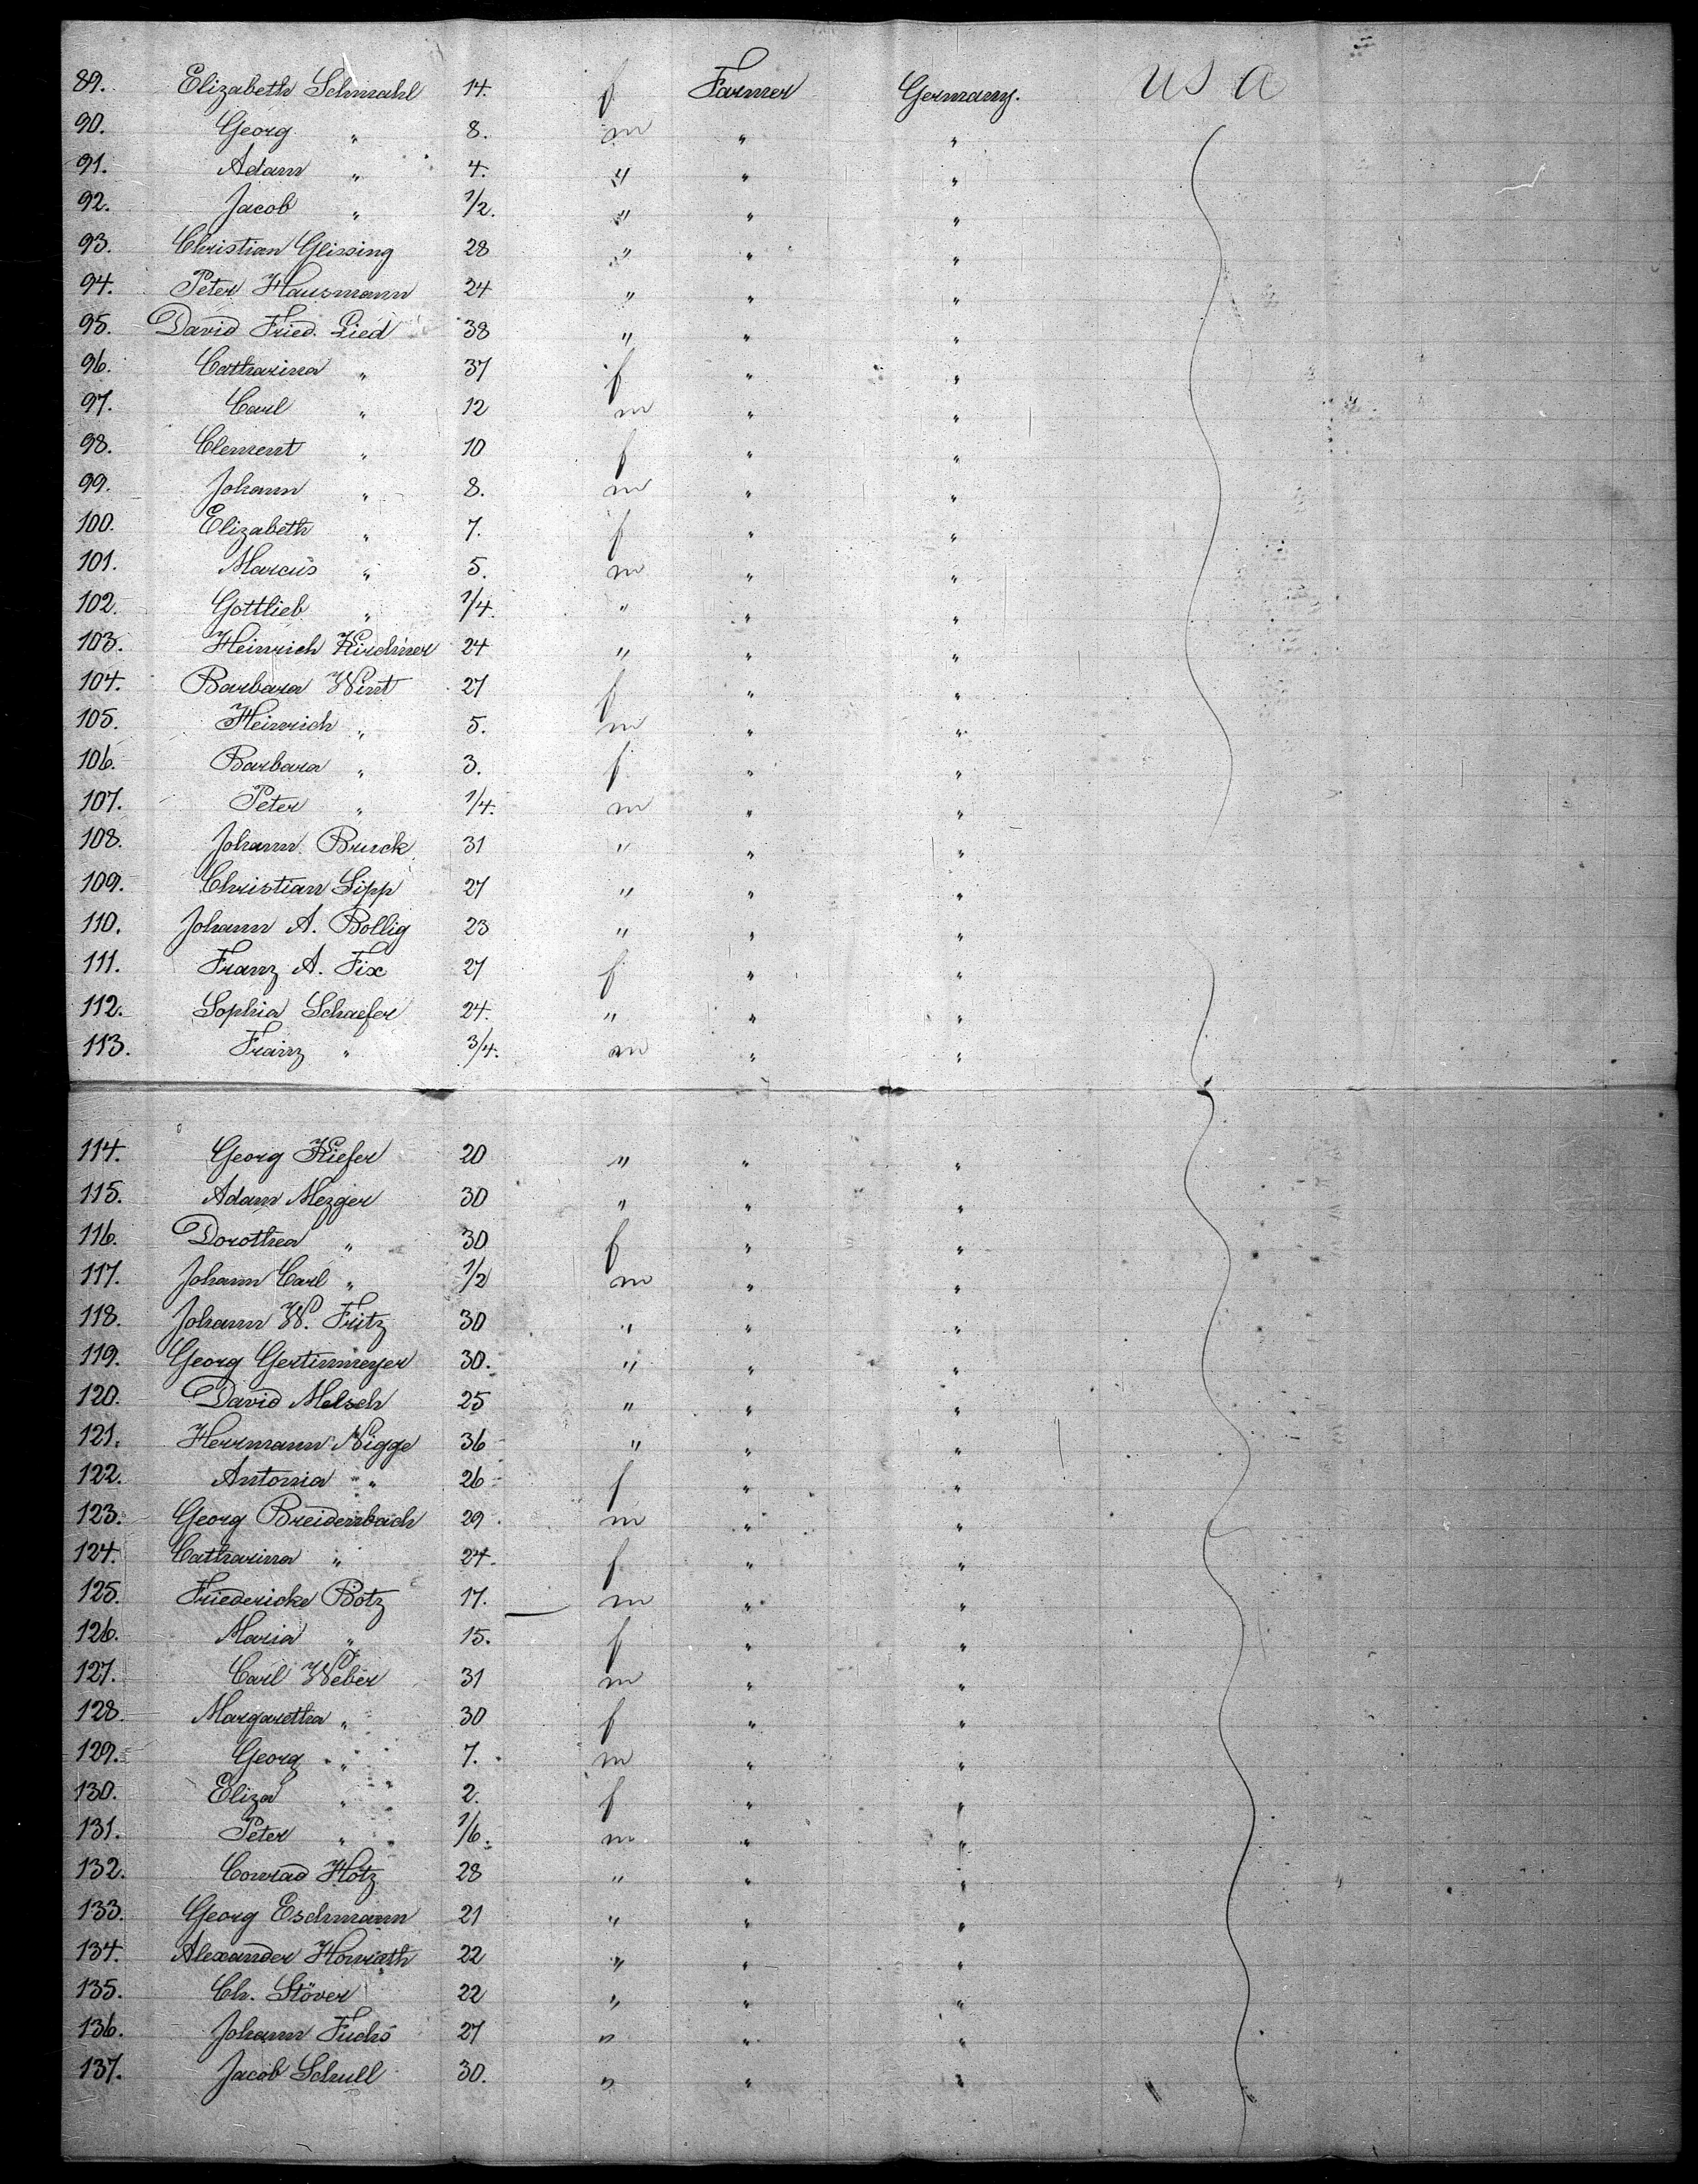 89. Elizabeth Schmahl 14. f Farmer Germany. U S A
90. Georg " 8. m " "
91. Adam " 4. " " "
92. Jacob " 1/2. " " "
93. Christian Glissing 28 " " "
94. Peter Hausmann 24 " " "
95. David Fried. Lied 38 " " "
96. Catharina " 37 f " "
97. Carl " 12 m " "
98. Clement " 10 f " "
99. Johann " 8. m " "
100. Elizabeth " 7. f " "
101. Marcus " 5. m " "
102. Gottlieb " 1/4. " " "
103. Heinrich Kirchner 24 " " "
104. Barbara Wint 27 f " "
105. Heinrich " 5. m " "
106. Barbara " 3. f " "
107. Peter " 1/4. m " "
108. Johann Brück 31 " " "
109. Christian Sipp 27 " " "
110. Johann A. Bollig 23 " " "
111. Franz A. Fix 27 f " "
112. Sophia Schaefer 24. " " "
113. Franz " 3/4. m " "
114. Georg Kiefer 20 " " "
115. Adam Mezger 30 " " "
116. Dorothea " 30 f " "
117. Johann Carl " 1/2 m " "
118. Johann W. Fritz 30 " " "
119. Georg 30. " " "
120. David Melsch 25 " " "
121. Herrmann Nigge 36 " " "
122. Antonia " 26 f " "
123. Georg Breidenbach 29 m " "
124. Catharina " 24. f " "
125. Friedericke Botz 17. m " "
126. Maria " 15. f " "
127. Carl Weber 31 m " "
128. Margaretha " 30 f " "
129. Georg " 7. m " "
130. Eliza " 2. f " "
131. Peter " 1/6. m " "
132. Conrad Hotz 28 " " "
133. Georg Eschmann 21 " " "
134. Alexander Horwath 22 " " "
135. Ch. Stöver 22 " " "
136. Johann Fuchs 27 " " "
137. Jacob Schull 30. " " "